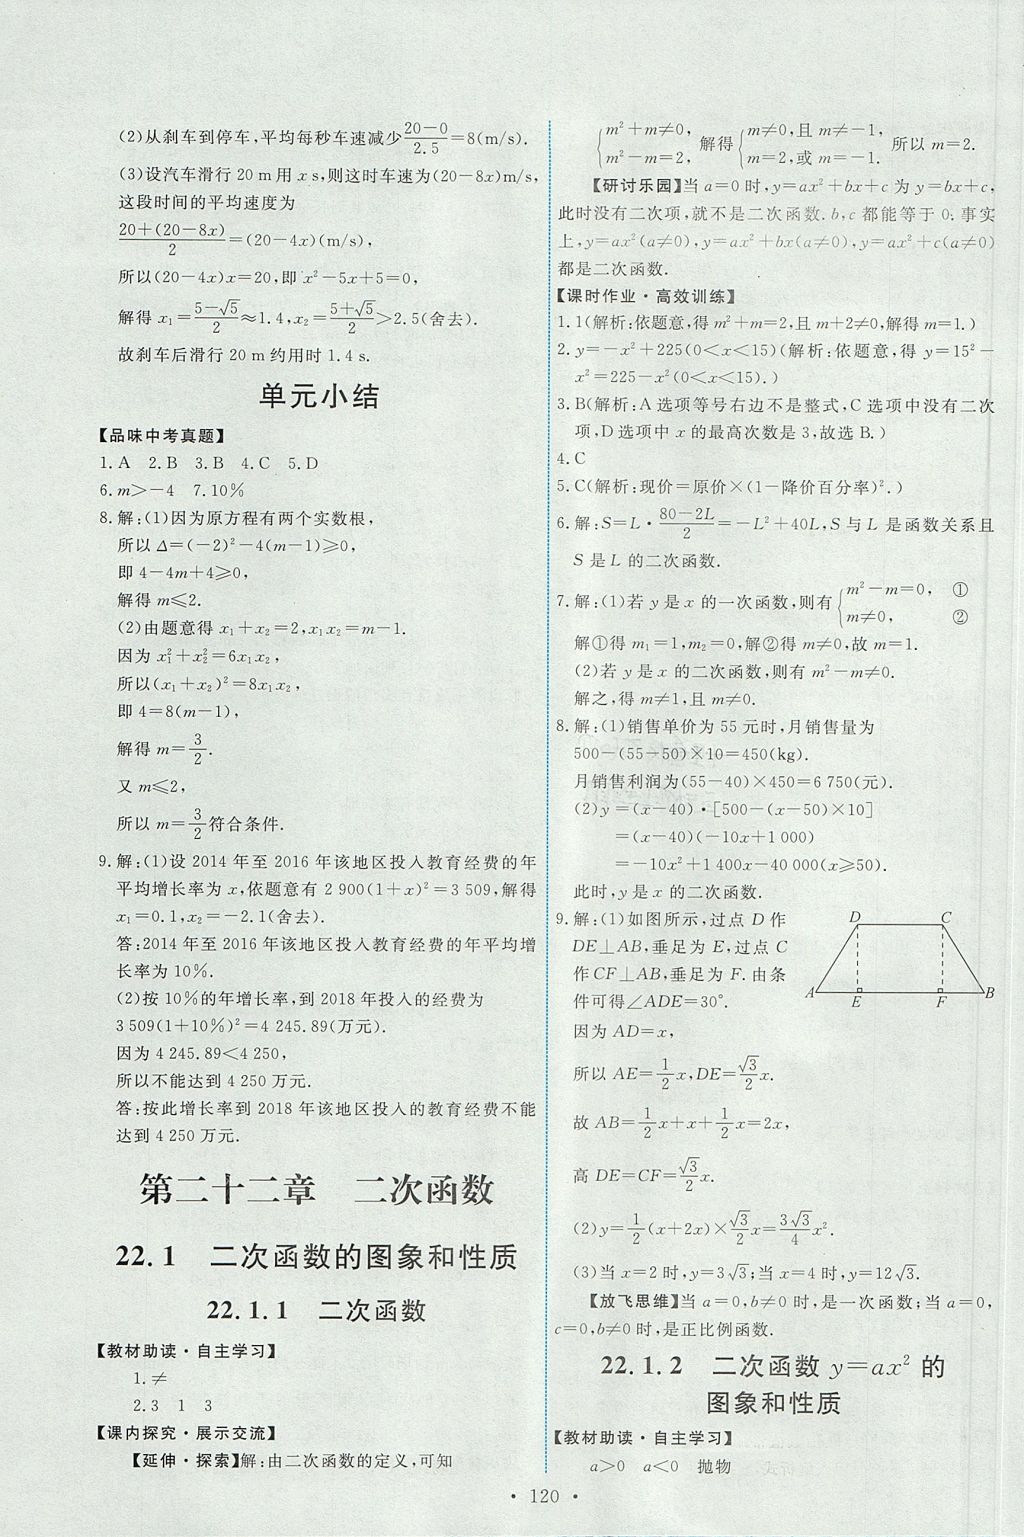 (2)从刹车到停车,平均每秒车速减少$\frac{20-0}{2.5}$=8(m/s).
(3)设汽车滑行20 m用x s,则这时车速为(20-8x)m/s,
这段时间的平均速度为
$\frac{20+(20-8x)}{2}$=(20-4x)(m/s),
所以(20-4x)x=20,即x²-5x+5=0,
解得x₁=$\frac{5-\sqrt{5}}{2}$≈1.4,x₂=$\frac{5+\sqrt{5}}{2}$>2.5(舍去).
故刹车后滑行20 m约用时1.4 s.
单元小结
【品味中考真题】
1.A 2.B 3.B 4.C 5.D
6.m>-4 7.10%
8.解:(1)因为原方程有两个实数根,
所以Δ=(-2)²-4(m-1)≥0,
即4-4m+4≥0,
解得m≤2.
(2)由题意得x₁+x₂=2,x₁x₂=m-1.
因为x₁²+x₂²=6x₁x₂,
所以(x₁+x₂)²=8x₁x₂,
即4=8(m-1),
解得m=$\frac{3}{2}$.
又m≤2,
所以m=$\frac{3}{2}$符合条件.
9.解:(1)设2014年至2016年该地区投入教育经费的年
平均增长率为x,依题意有2 900(1+x)²=3 509,解得
x₁=0.1,x₂=-2.1(舍去).
答:2014年至2016年该地区投入教育经费的年平均增
长率为10%.
(2)按10%的年增长率,到2018年投入的经费为
3 509(1+10%)²=4 245.89(万元).
因为4 245.89<4 250,
所以不能达到4 250万元.
答:按此增长率到2018年该地区投入的教育经费不能
达到4 250万元.
第二十二章 二次函数
22.1 二次函数的图象和性质
22.1.1 二次函数
【教材助读·自主学习】
1.≠
2.3 1 3
【课内探究·展示交流】
【延伸·探索】解:由二次函数的定义,可知
$\begin{cases}m^2+m≠0,\\m^2-m=2,\end{cases}$解得$\begin{cases}m≠0,且m≠-1,\\m=2,或m=-1.\end{cases}$所以m=2.
【研讨乐园】当a=0时,y=ax²+bx+c为y=bx+c,
此时没有二次项,就不是二次函数.b,c都能等于0;事实
上,y=ax²(a≠0),y=ax²+bx(a≠0),y=ax²+c(a≠0)
都是二次函数.
【课时作业·高效训练】
1.1(解析:依题意,得m²+m=2,且m+2≠0,解得m=1.)
2.y=-x²+225(0<x<15)(解析:依题意,得y=15²-
x²=225-x²(0<x<15).)
3.B(解析:A选项等号右边不是整式,C选项中没有二次
项,D选项中x的最高次数是3,故选B.)
4.C
5.C(解析:现价=原价×(1-降价百分率)².)
6.解:S=L·$\frac{80-2L}{2}$=-L²+40L,S与L是函数关系且
S是L的二次函数.
7.解:(1)若y是x的一次函数,则有$\begin{cases}m^2-m=0, ①\\m≠0, ②\end{cases}$
解①得m₁=1,m₂=0,解②得m≠0,故m=1.
(2)若y是x的二次函数,则有m²-m≠0.
解之,得m≠1,且m≠0.
8.解:(1)销售单价为55元时,月销售量为
500-(55-50)×10=450(kg).
月销售利润为(55-40)×450=6 750(元).
(2)y=(x-40)·[500-(x-50)×10]
=(x-40)(-10x+1 000)
=-10x²+1 400x-40 000(x≥50).
此时,y是x的二次函数.
9.解:(1)如图所示,过点D作
DE⊥AB,垂足为E,过点C
作CF⊥AB,垂足为F.由条
件可得∠ADE=30°.
D C
A E F B
因为AD=x,
所以AE=$\frac{1}{2}$x,DE=$\frac{\sqrt{3}}{2}$x.
故AB=$\frac{1}{2}$x+x+$\frac{1}{2}$x=2x,
高DE=CF=$\frac{\sqrt{3}}{2}$x.
(2)y=$\frac{1}{2}$(x+2x)×$\frac{\sqrt{3}}{2}$x=$\frac{3\sqrt{3}}{4}$x².
(3)当x=2时,y=3√3;当x=4时,y=12√3.
【放飞思维】当a=0,b≠0时,是一次函数;当a=0,
c=0,b≠0时,是正比例函数.
22.1.2 二次函数y=ax²的
图象和性质
【教材助读·自主学习】
a>0 a<0 抛物
· 120 ·